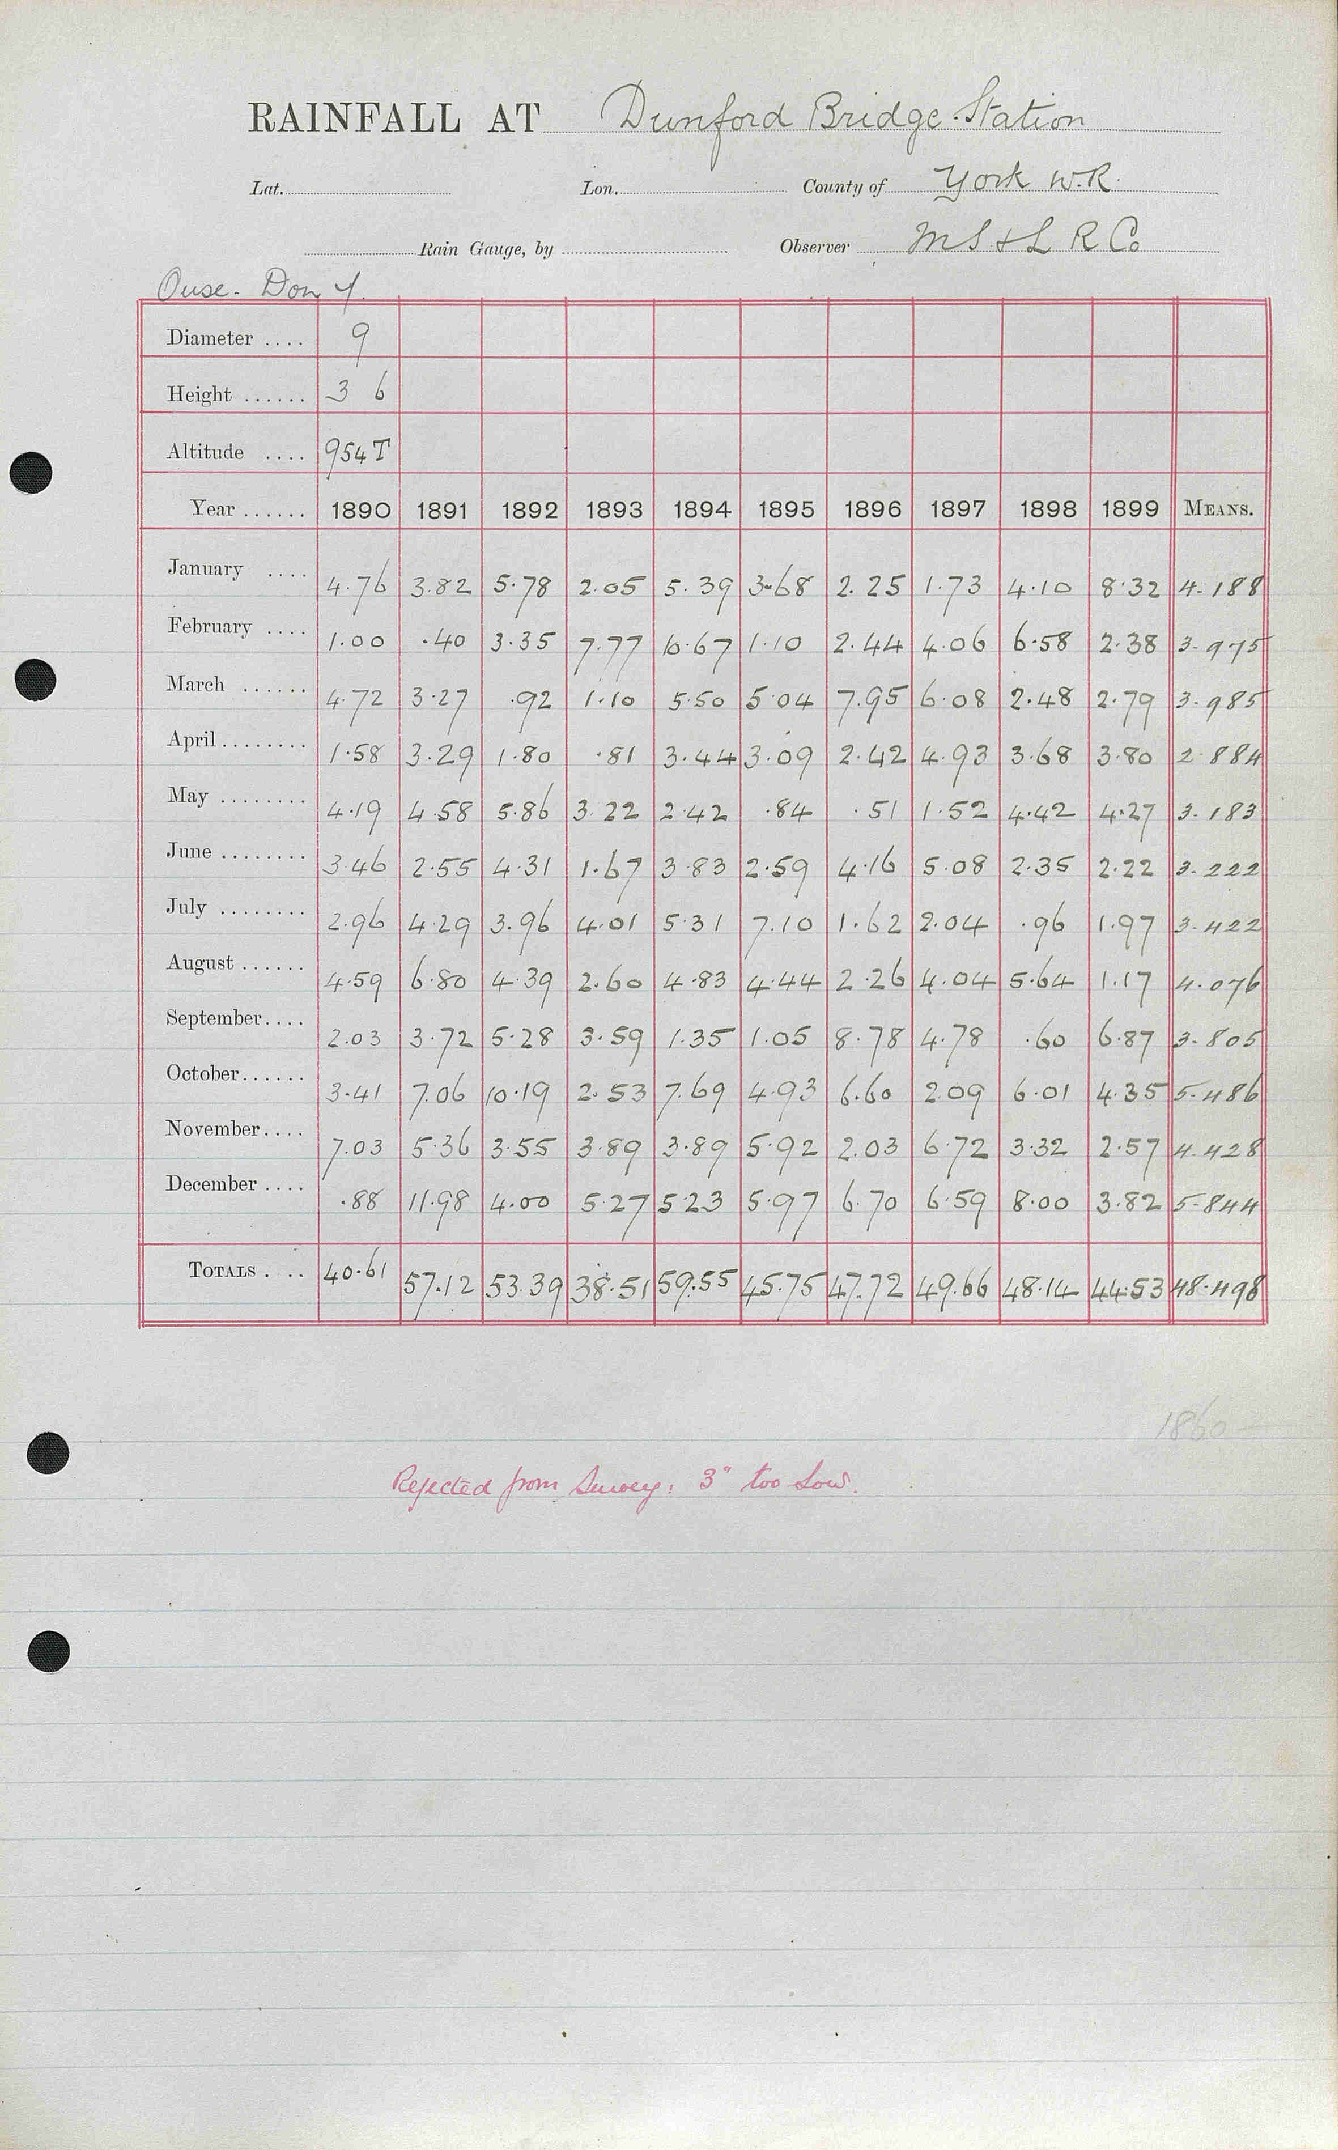 RAINFALL AT Dunford Bridge Station
Lat. Lon. County of York W.R.
Rain Gauge, by Observer M S & L R Co
Ouse. Don Y.
Diameter .... 9
Height ...... 3 6
Altitude .... 954 T
Year ...... 1890 1891 1892 1893 1894 1895 1896 1897 1898 1899 MEANS.
January .... 4.76 3.82 5.78 2.05 5.39 3.68 2.25 1.73 4.10 8.32 4.188
February .... 1.00 .40 3.35 7.77 10.67 1.10 2.44 4.06 6.58 2.38 3.975
March ...... 4.72 3.27 .92 1.10 5.50 5.04 7.95 6.08 2.48 2.79 3.985
April ........ 1.58 3.29 1.80 .81 3.44 3.09 2.42 4.93 3.68 3.80 2.884
May ........ 4.19 4.58 5.86 3.22 2.42 .84 .51 1.52 4.42 4.27 3.183
June ........ 3.46 2.55 4.31 1.67 3.83 2.59 4.16 5.08 2.35 2.22 3.222
July ........ 2.96 4.29 3.96 4.01 5.31 7.10 1.62 2.04 .96 1.97 3.422
August ...... 4.59 6.80 4.39 2.60 4.83 4.44 2.26 4.04 5.64 1.17 4.076
September.... 2.03 3.72 5.28 3.59 1.35 1.05 8.78 4.78 .60 6.87 3.805
October...... 3.41 7.06 10.19 2.53 7.69 4.93 6.60 2.09 6.01 4.35 5.486
November.... 7.03 5.36 3.55 3.89 3.89 5.92 2.03 6.72 3.32 2.57 4.428
December .... .88 11.98 4.00 5.27 5.23 5.97 6.70 6.59 8.00 3.82 5.844
TOTALS .... 40.61 57.12 53.39 38.51 59.55 45.75 47.72 49.66 48.14 44.53 48.498
1860 —
Rejected from Survey: 3" too low.